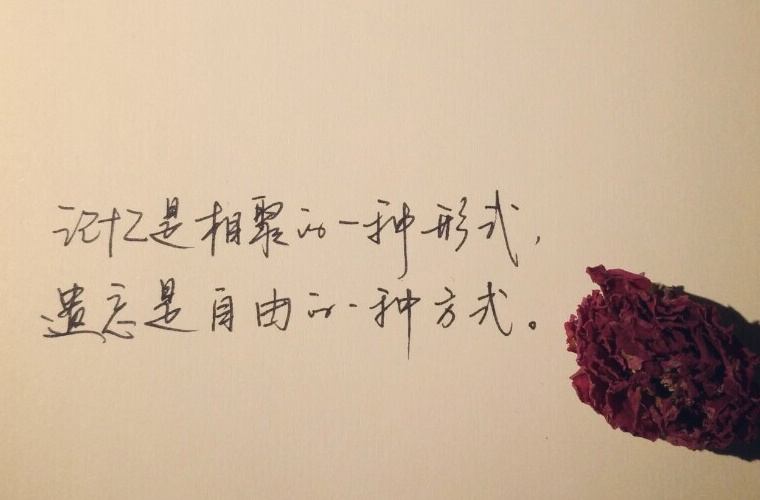 记忆是相聚的一种形式，
遗忘是自由的一种方式。